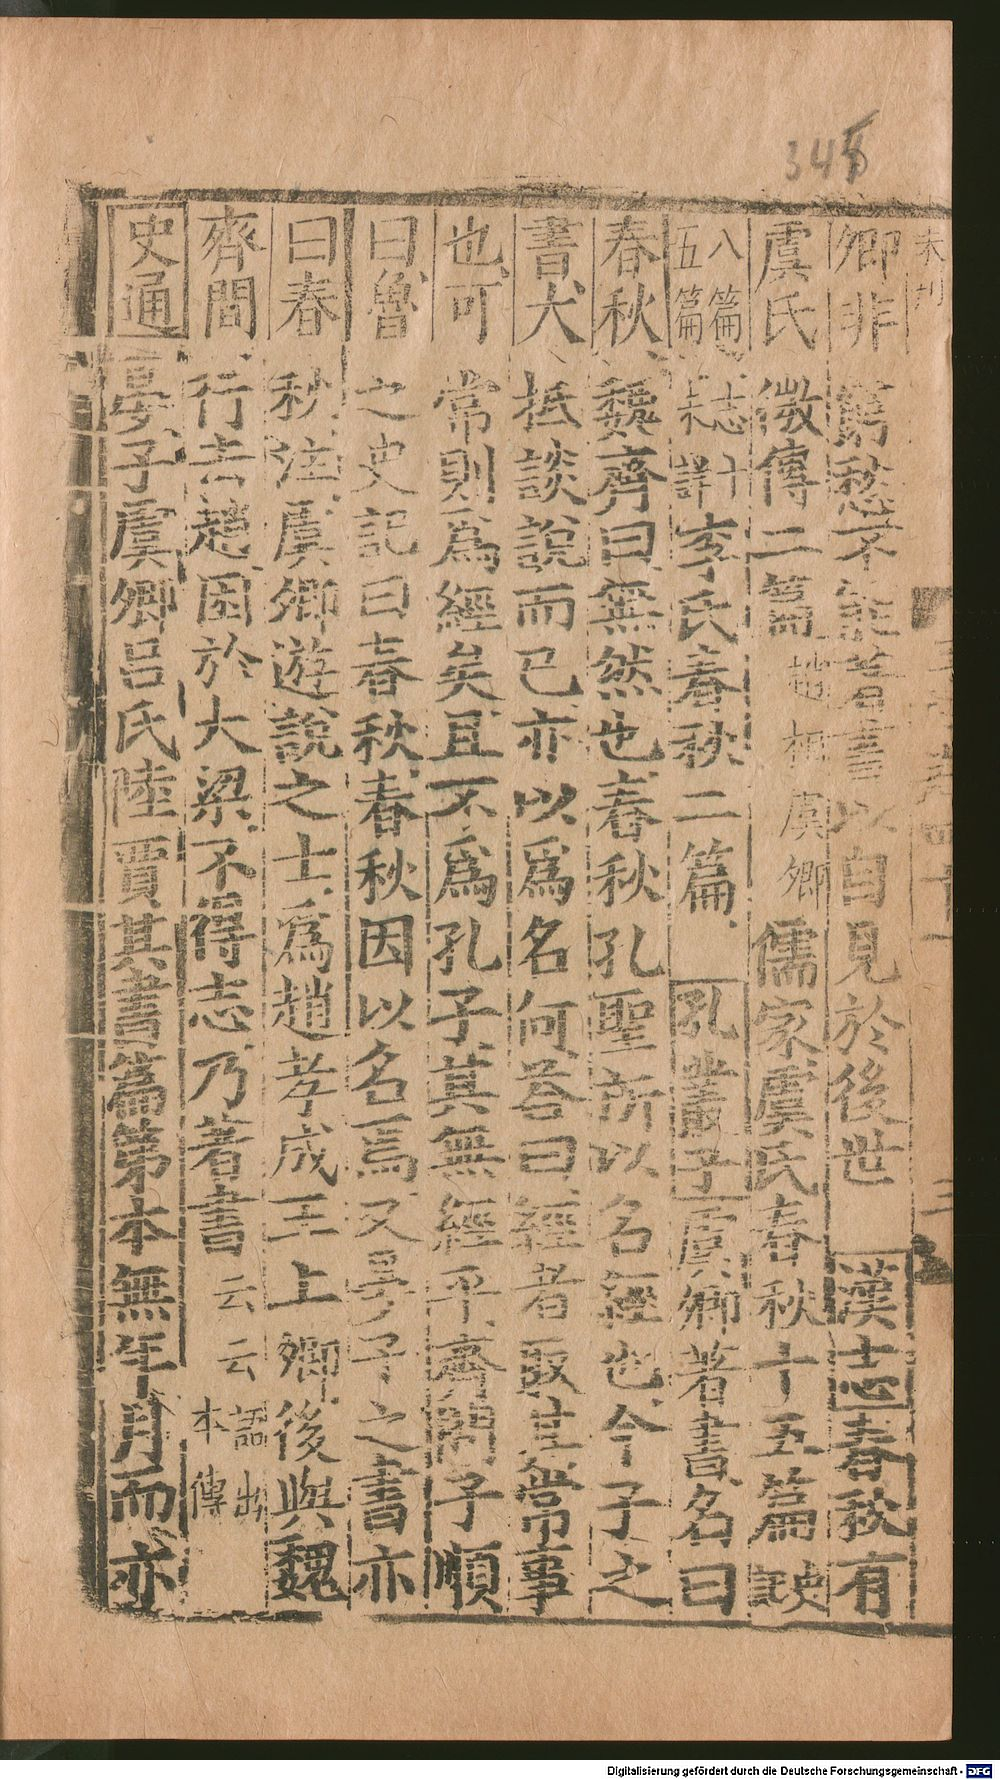 345
卿非窮愁不能著書以自見於後世 漢志春秋有
虞氏微傳二篇趙相虞卿儒家虞氏春秋十五篇誤
八篇志十五篇未詳李氏春秋二篇 孔叢子虞卿著書名曰
春秋魏齊曰無然也春秋孔聖所以名經也今子之
書大抵談說而已亦以爲名何荅曰經者取其常事
也可常則爲經矣且不爲孔子其無經乎齊問子順
曰魯之史記曰春秋春秋因以名焉又晏子之書亦
曰春秋注虞卿遊說之士爲趙孝成王上卿後與魏
齊間行去趙困於大梁不得志乃著書云云語出本傳
史通晏子虞卿呂氏陸賈其書篇第本無年月而亦
Digitalisierung gefördert durch die Deutsche Forschungsgemeinschaft - DFG